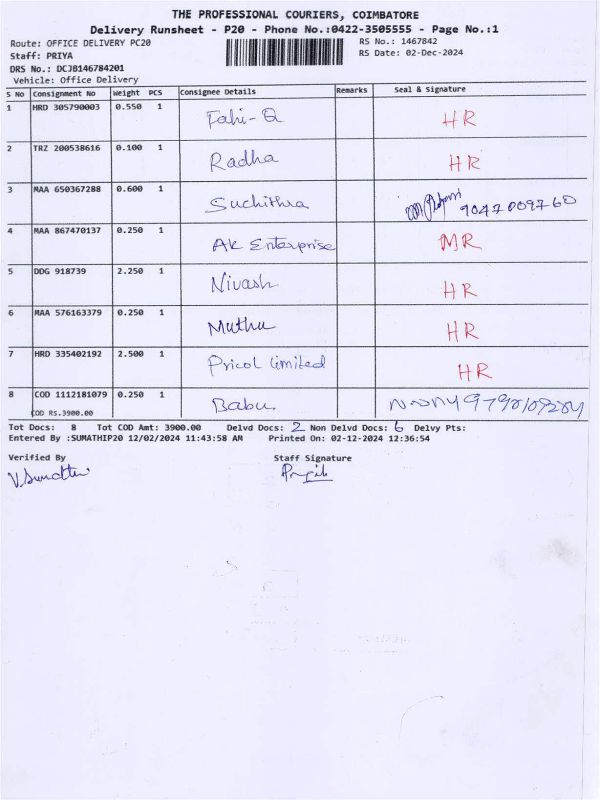 THE PROFESSIONAL COURIERS, COIMBATORE
Delivery Runsheet - P20 - Phone No.:0422-3505555 - Page No.:1
Route: OFFICE DELIVERY PC20 RS No.: 1467842
Staff: PRIYA RS Date: 02-Dec-2024
DRS No.: DCJB146784201
Vehicle: Office Delivery
S No Consignment No Weight PCS Consignee Details Remarks Seal & Signature
1 HRD 305790003 0.550 1 Fahi-Q HR
2 TRZ 200538616 0.100 1 Radha HR
3 MAA 650367288 0.600 1 Suchithra 9047009760
4 MAA 867470137 0.250 1 AK Enterprise MR
5 DDG 918739 2.250 1 Nivash HR
6 MAA 576163379 0.250 1 Muthu HR
7 HRD 335402192 2.500 1 Pricol limited HR
8 COD 1112181079 0.250 1 Babu
COD RS.3900.00
Tot Docs: 8 Tot COD Amt: 3900.00 Delvd Docs: 2 Non Delvd Docs: 6 Delvy Pts:
Entered By :SUMATHIP20 12/02/2024 11:43:58 AM Printed On: 02-12-2024 12:36:54
Verified By Staff Signature
V. Sumathi